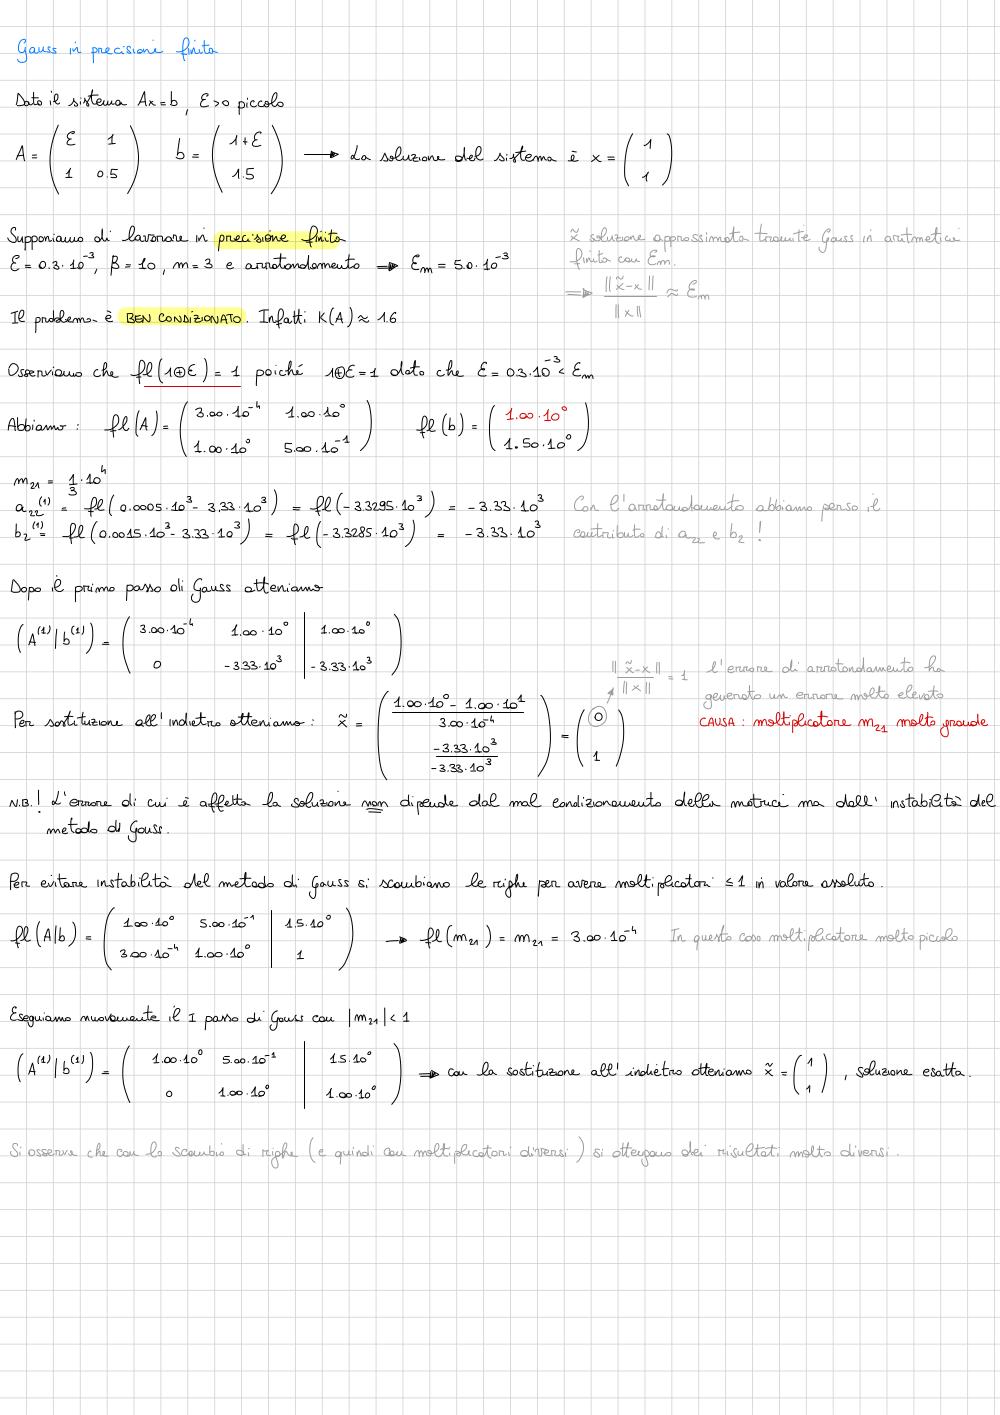 Gauss in precisione finita
Dato il sistema Ax = b, ε>0 piccolo
A = ( ε 1 ; 1 0.5 ) b = ( 1+ε ; 1.5 ) → La soluzione del sistema è x = ( 1 ; 1 )
Supponiamo di lavorare in precisione finita
ε = 0.3·10⁻³, β = 10, m = 3 e arrotondamento ⇒ εm = 5.0·10⁻³
x̃ soluzione approssimata tramite Gauss in aritmetica
finita con εm.
⇒ ||x̃-x|| / ||x|| ≈ εm
Il problema è BEN CONDIZIONATO. Infatti K(A) ≈ 1.6
Osserviamo che fl(1⊕ε) = 1 poiché 1⊕ε=1 dato che ε = 0.3·10⁻³ < εm
Abbiamo: fl(A) = ( 3.00·10⁻⁴ 1.00·10⁰ ; 1.00·10⁰ 5.00·10⁻¹ ) fl(b) = ( 1.00·10⁰ ; 1.50·10⁰ )
m₂₁ = 1/3·10⁴
a₂₂⁽¹⁾ = fl(0.0005·10³ - 3.33·10³) = fl(-3.3295·10³) = -3.33·10³
b₂⁽¹⁾ = fl(0.0015·10³ - 3.33·10³) = fl(-3.3285·10³) = -3.33·10³
Con l'arrotondamento abbiamo perso il
contributo di a₂₂ e b₂ !
Dopo il primo passo di Gauss otteniamo
(A⁽¹⁾|b⁽¹⁾) = ( 3.00·10⁻⁴ 1.00·10⁰ | 1.00·10⁰ ; 0 -3.33·10³ | -3.33·10³ )
Per sostituzione all'indietro otteniamo: x̃ = ( (1.00·10⁰ - 1.00·10¹) / 3.00·10⁻⁴ ; -3.33·10³ / -3.33·10³ ) = ( 0 ; 1 )
||x̃-x|| / ||x|| = 1 l'errore di arrotondamento ha
generato un errore molto elevato
CAUSA: moltiplicatore m₂₁ molto grande
N.B.! L'errore di cui è affetta la soluzione non dipende dal mal condizionamento della matrici ma dall'instabilità del
metodo di Gauss.
Per evitare instabilità del metodo di Gauss si scambiano le righe per avere moltiplicatori ≤ 1 in valore assoluto.
fl(A|b) = ( 1.00·10⁰ 5.00·10⁻¹ | 1.5·10⁰ ; 3.00·10⁻⁴ 1.00·10⁰ | 1 ) → fl(m₂₁) = m₂₁ = 3.00·10⁻⁴ In questo caso moltiplicatore molto piccolo
Eseguiamo nuovamente il I passo di Gauss con |m₂₁| < 1
(A⁽¹⁾|b⁽¹⁾) = ( 1.00·10⁰ 5.00·10⁻¹ | 1.5·10⁰ ; 0 1.00·10⁰ | 1.00·10⁰ ) ⇒ con la sostituzione all'indietro otteniamo x̃ = ( 1 ; 1 ), soluzione esatta.
Si osserva che con lo scambio di righe (e quindi con moltiplicatori diversi) si ottengono dei risultati molto diversi.